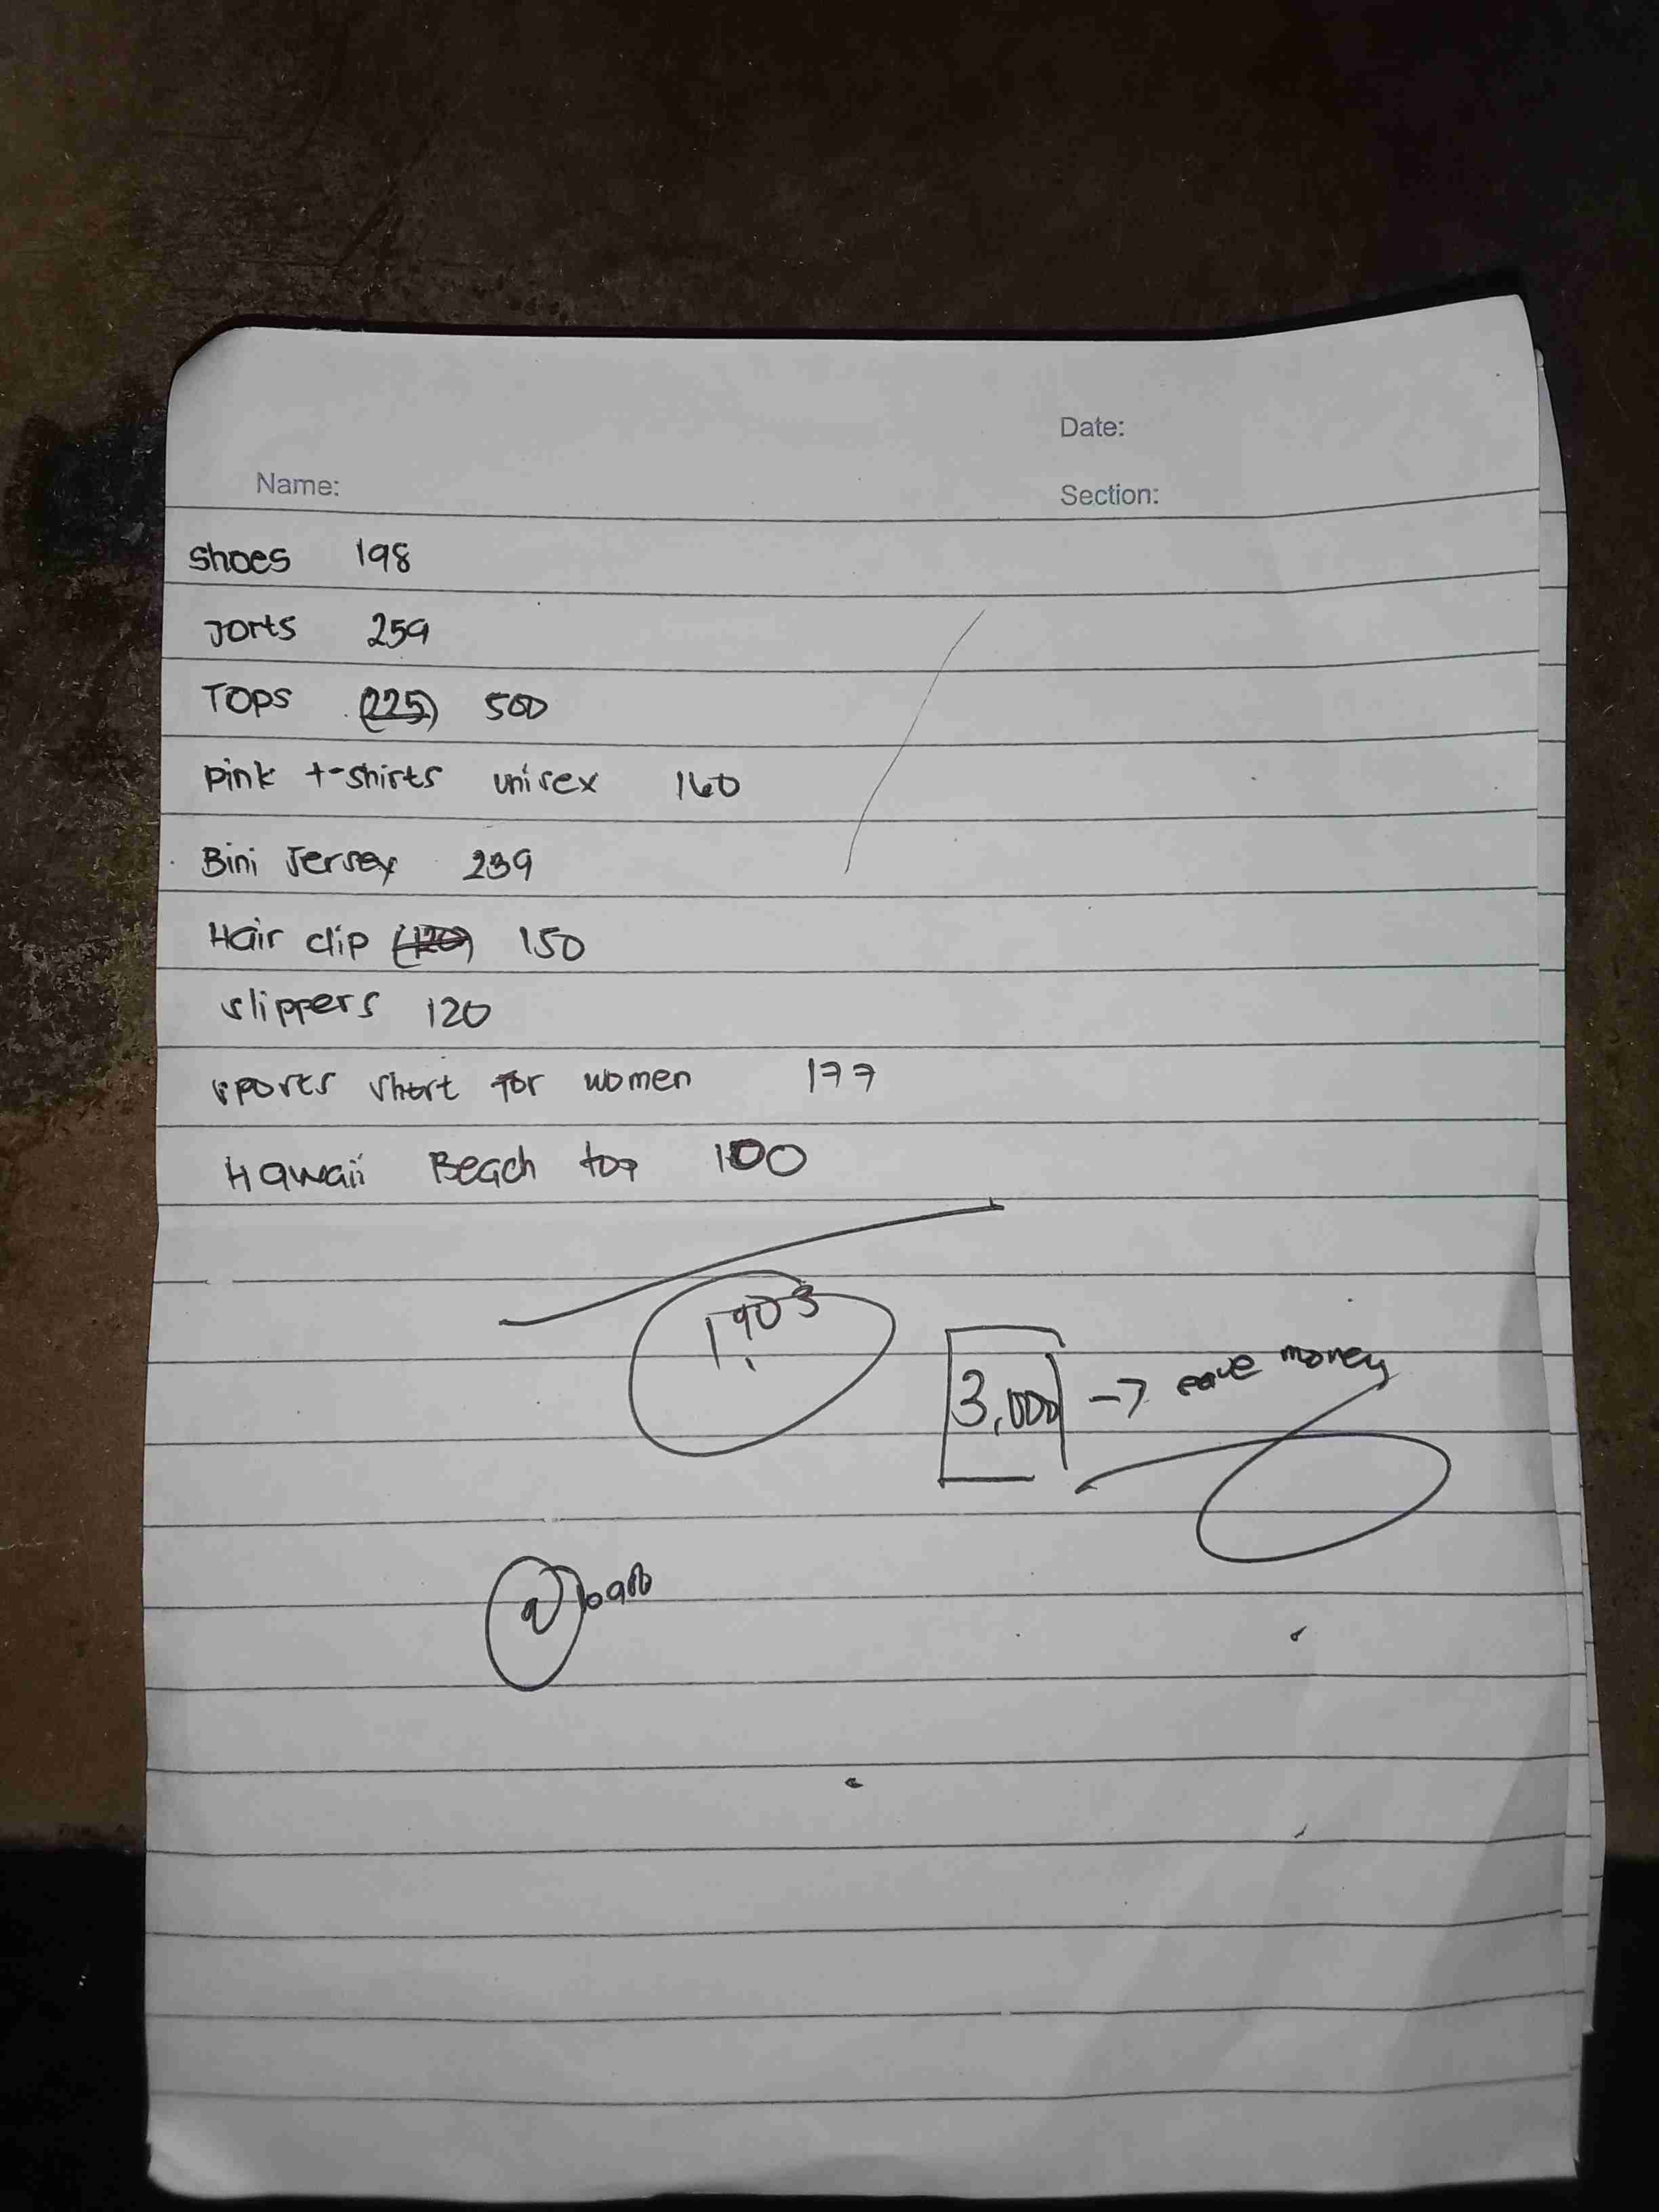 Date:
Name:
Section:
shoes 198
Jorts 259
TOPS (225) 500
pink t-shirts unisex 160
Bini Jersey 239
Hair clip (120) 150
slippers 120
sports short for women 177
Hawaii Beach top 100
1,903
3,000 → save money